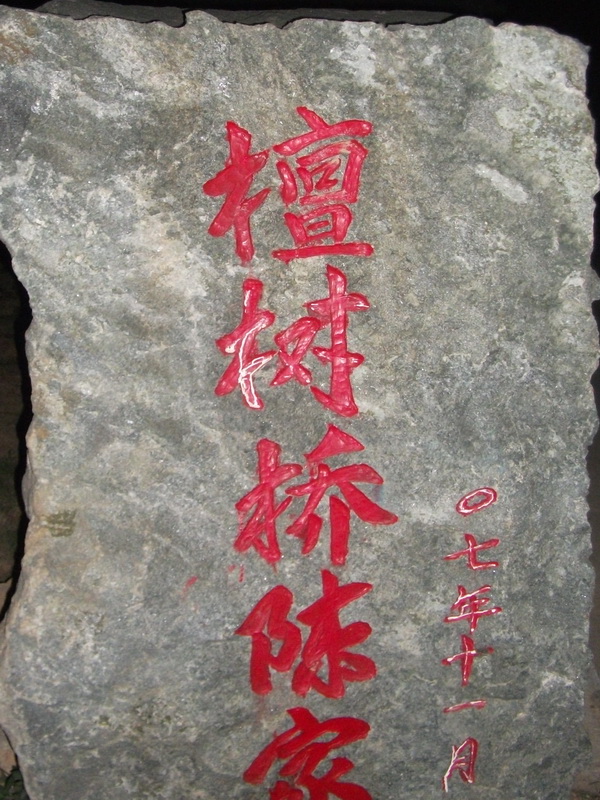 檀树桥陈家
〇七年十一月